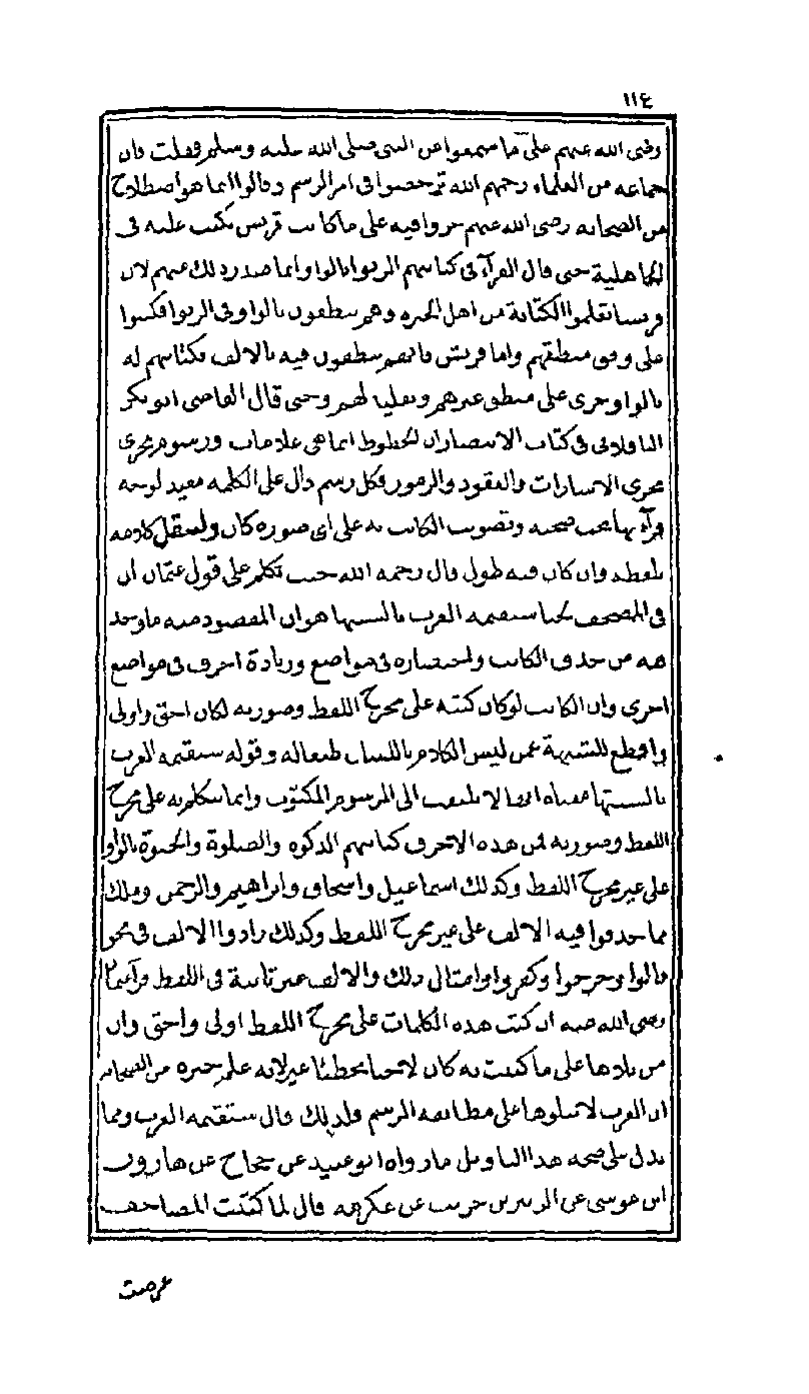 ١١٤
رضى الله عنهم على ما سمعوا من النبى صلى الله عليه وسلم فقلت فان
جماعه من العلماء رحمهم الله ترخصوا فى امر الرسم وقالوا انما هو اصطلاح
من الصحابه رضى الله عنهم جروا فيه على ما كانت قريش تكتب عليه فى
الجاهلية حتى قال الفرآء فى كتابتهم الربوا بالواو انما صدر ذلك عنهم لان
قريشا تعلموا الكتابة من اهل الحيره وهم ينطقون بالواو فى الربوا فكتبوا
على وفق منطقهم واما قريش فانهم ينطقون فيه بالالف فكتابتهم له
بالواو جرى على منطق غيرهم وتقليد لهم وحتى قال القاضى ابو بكر
الباقلانى فى كتاب الانتصار ان الخطوط انما هى علامات ورسوم تجرى
مجرى الاشارات والعقود والرموز فكل رسم دال على الكلمه مفيد لوجه
قرآءتها يجب صحته وتصويب الكاتب به على اى صوره كان ولننقل كلامه
بلفظه وان كان فيه طول قال رحمه الله حيث تكلم على قول عثمان ان
فى المصحف لحنا ستقيمه العرب بالسنتها هو ان المقصود منه ما وجد
فيه من حذف الكاتب واختصاره فى مواضع وزيادة احرف فى مواضع
اخرى وان الكاتب لو كان كتبه على مخرج اللفظ وصورته لكان احق واولى
واقطع للشبهة عمن ليس الكلام باللسان طبعا له وقوله ستقيمه العرب
بالسنتها معناه انها لا تلتفت الى المرسوم المكتوب وانما تتكلم به على مخرج
اللفظ وصورته فمن هذه الاحرف كتابتهم الزكوة والصلوة والحيوة بالواو
على غير مخرج اللفظ وكذلك اسماعيل واسحاق وابراهيم والرحمن وملك
مما حذفوا فيه الالف على غير مخرج اللفظ وكذلك زادوا الالف فى نحو
قالوا وخرجوا وكفروا وامثال ذلك والالف غير ثابتة فى اللفظ فرأى عثمان
رضى الله عنه ان كتب هذه الكلمات على مخرج اللفظ اولى واحق وان
من تلاها على ما كتبت به كان لاحنا مخطئا غير انه علم هو وغيره من الصحابه
ان العرب لا تتلوها على مطابقة الرسم فلذلك قال ستقيمه العرب ومما
يدل على صحه هذا التاويل ما رواه ابو عبيد عن حجاج عن هارون
ابن موسى عن الزبير بن خريت عن عكرمه قال لما كتبت المصاحف
عرضت